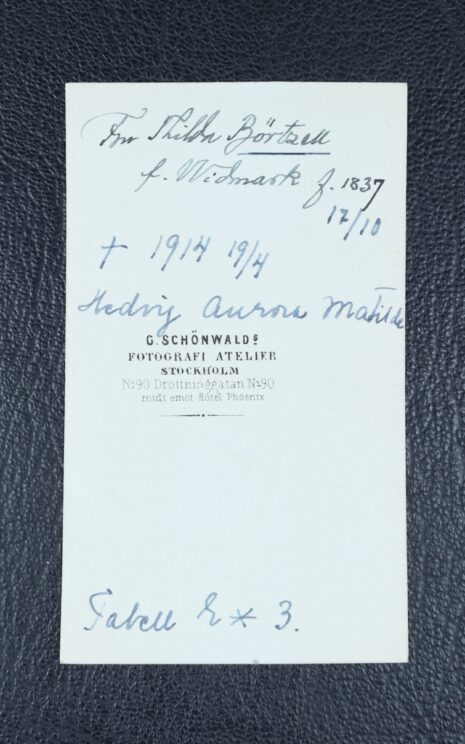 Fru Thilda Börtzell
f. Widmark f. 1837
17/10
† 1914 19/4
Hedvig Aurora Matilda
G. SCHÖNWALDS
FOTOGRAFI ATELIER
STOCKHOLM
No 90 Drottninggatan No 90
midt emot Hôtel Phoenix.
Tabell 2 * 3.